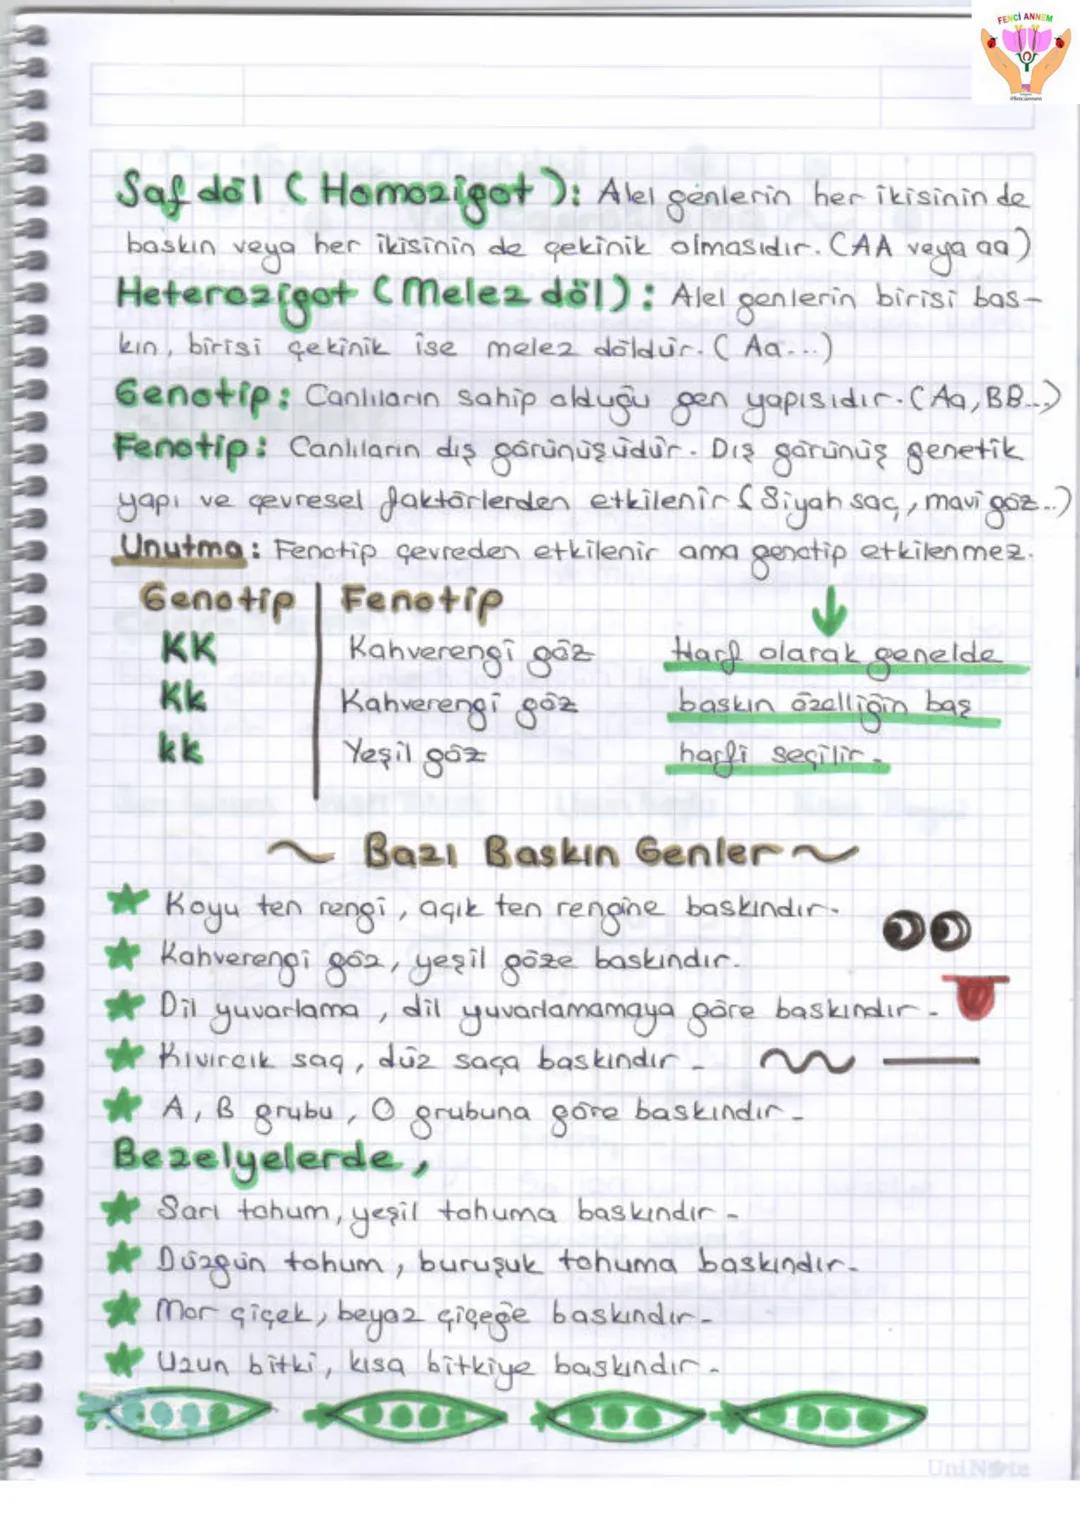 FENCİ ANNEM
Saf döl (Homozigot): Alel genlerin her ikisinin de
baskın veya her ikisinin de çekinik olmasıdır. (AA veya aa)
Heterozigot (Melez döl): Alel genlerin birisi bas-
kın, birisi çekinik ise melez döldür. (Aa...)
Genotip: Canlıların sahip olduğu gen yapısıdır. (Aa, BB...)
Fenotip: Canlıların dış görünüşüdür. Dış görünüş genetik
yapı ve çevresel faktörlerden etkilenir (Siyah saç, mavi göz...)
Unutma: Fenotip çevreden etkilenir ama genotip etkilenmez.
Genotip | Fenotip
KK Kahverengi göz Harf olarak genelde
Kk Kahverengi göz baskın özelliğin baş
kk Yeşil göz harfi seçilir.
~ Bazı Baskın Genler ~
Koyu ten rengi, açık ten rengine baskındır.
Kahverengi göz, yeşil göze baskındır.
Dil yuvarlama, dil yuvarlamamaya göre baskındır.
Kıvırcık saç, düz saça baskındır.
A, B grubu, O grubuna göre baskındır.
Bezelyelerde,
Sarı tohum, yeşil tohuma baskındır.
Düzgün tohum, buruşuk tohuma baskındır.
Mor çiçek, beyaz çiçeğe baskındır.
Uzun bitki, kısa bitkiye baskındır.
UniNote